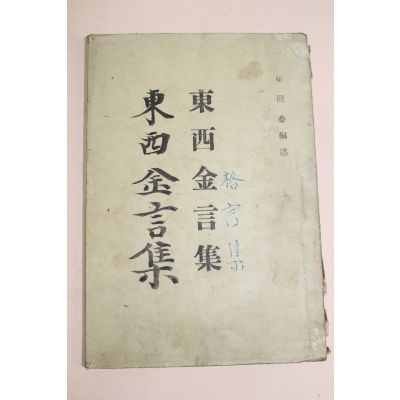 泰編述
格言集
東西金言集
東西金言集